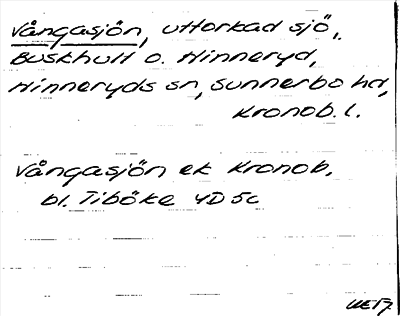 Vångasjön, uttorkad sjö,
Buskhult o. Hinneryd,
Hinneryds sn, Sunnerbo hd,
Kronob. l.
Vångasjön ek Kronob.
bl. Tiböke 4D 5c